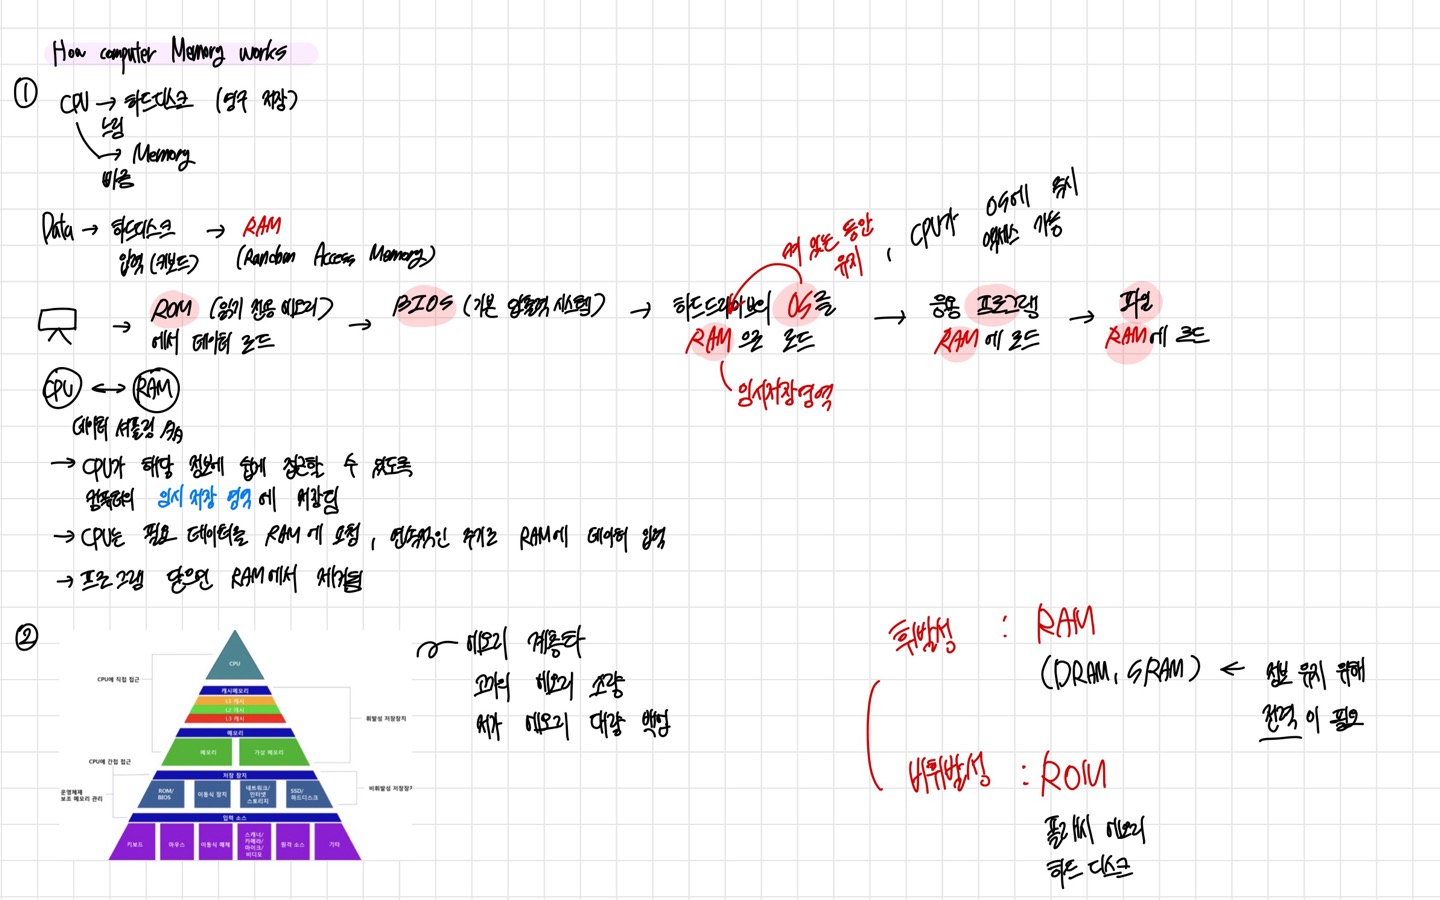 How computer Memory works
①
CPU → 하드디스크 (영구 저장)
느림
→ Memory
빠름
Data → 하드디스크 → RAM
입력 (키보드) (Random Access Memory)
켜 있는 동안
유지
, CPU가 OS에 즉시
액세스 가능
→ ROM (읽기 전용 메모리)
에서 데이터 로드
→ BIOS (기본 입출력 시스템)
→ 하드드라이브의 OS를
RAM으로 로드
임시저장영역
→ 응용 프로그램
RAM에 로드
→ 파일
RAM에 로드
CPU ↔ RAM
데이터 셔플링
→ CPU가 해당 정보에 쉽게 접근할 수 있도록
컴퓨터의 임시 저장 영역에 저장됨
→ CPU는 필요 데이터를 RAM에 요청, 연속적인 주기로 RAM에 데이터 입력
→ 프로그램 닫으면 RAM에서 제거됨
②
CPU
CPU에 직접 접근
캐시메모리
L1 캐시
L2 캐시
L3 캐시
휘발성 저장장치
메모리
메모리 가상 메모리
CPU에 간접 접근
저장 장치
운영체제
보조 메모리 관리
ROM/
BIOS
이동식 장치
네트워크/
인터넷
스토리지
SSD/
하드디스크
비휘발성 저장장치
입력 소스
키보드
마우스
이동식 매체
스캐너/
카메라/
마이크/
비디오
원격 소스
기타
메모리 계층타
고가의 메모리 소량
저가 메모리 대량 백업
휘발성 : RAM
(DRAM, SRAM) ← 정보 유지 위해
전력이 필요
비휘발성 : ROM
플래시 메모리
하드 디스크